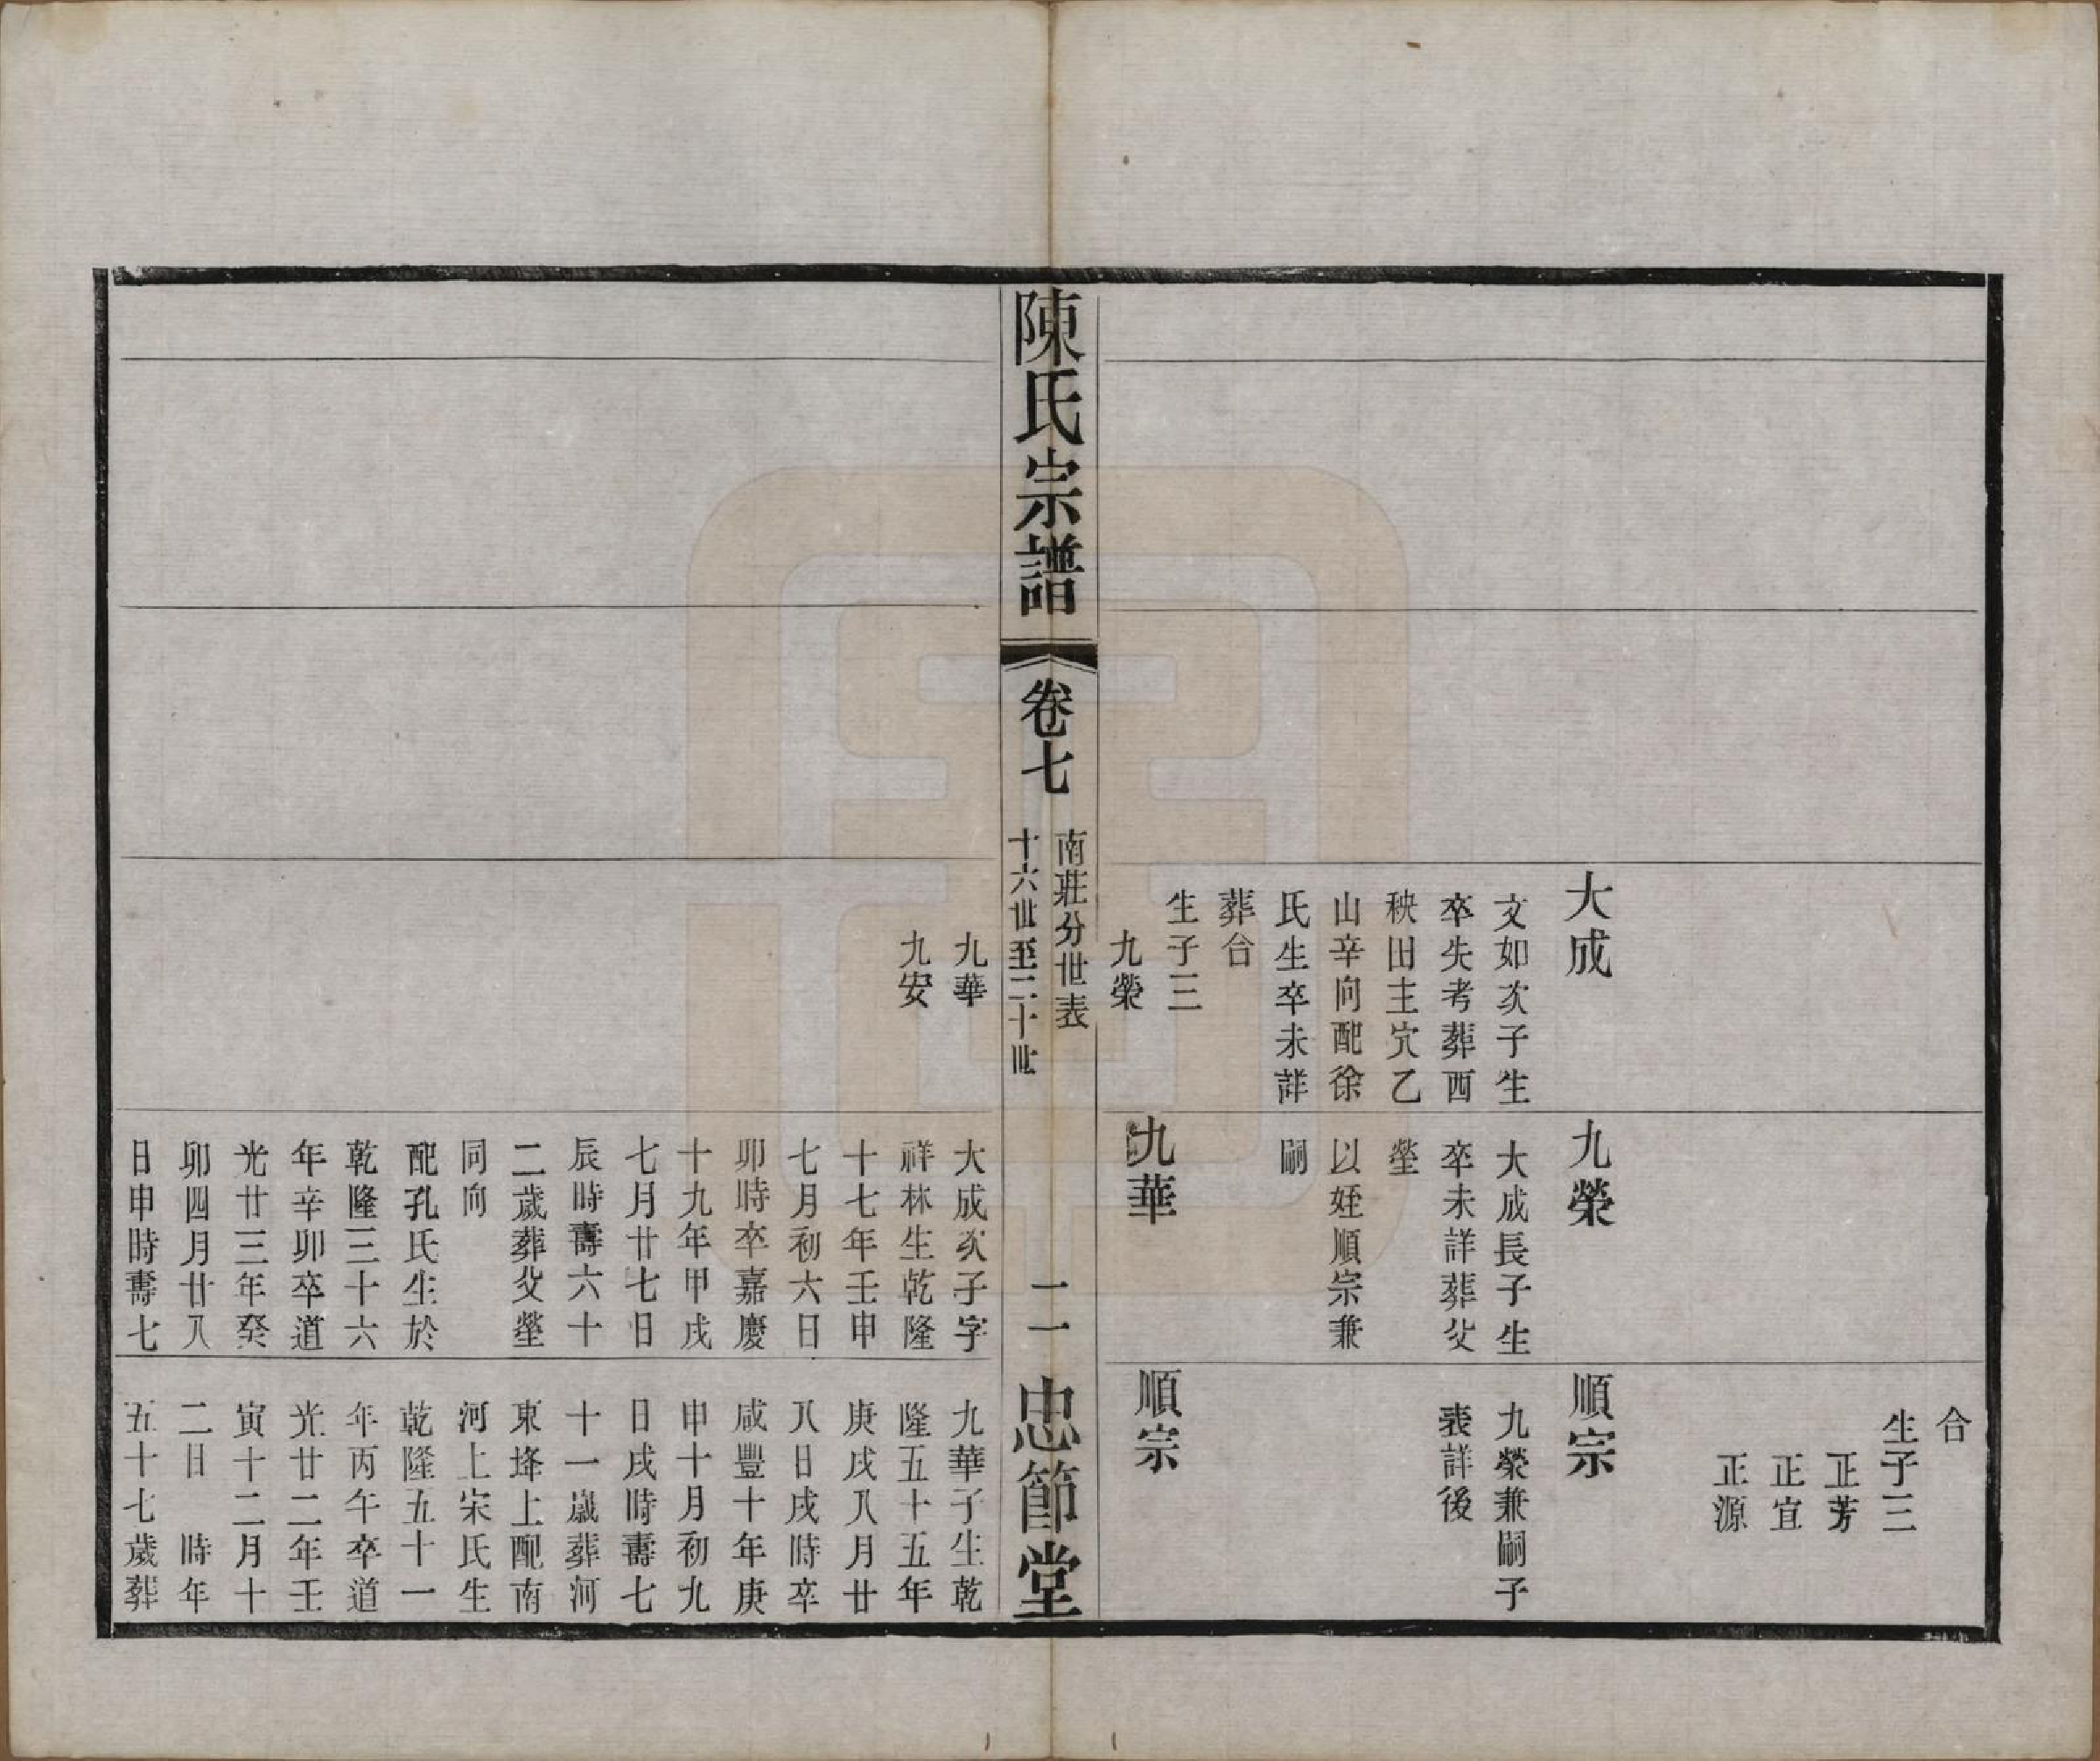 合
生子三
正芳
正宜
正源
大成
文如次子生
卒失考葬西
秧田主穴乙
山辛向配徐
氏生卒未詳
葬合
生子三
九榮
九榮
大成長子生
卒未詳葬父
塋
以姪順宗兼
嗣
九華
順宗
九榮兼嗣子
表詳後
順宗
陳氏宗譜
卷七
南莊分世表
十六世至二十世
二一
忠節堂
九華
九安
大成次子字
祥林生乾隆
十七年壬申
七月初六日
卯時卒嘉慶
十九年甲戌
七月廿七日
辰時壽六十
二歲葬父塋
同向
配孔氏生於
乾隆三十六
年辛卯卒道
光廿三年癸
卯四月廿八
日申時壽七
九華子生乾
隆五十五年
庚戌八月廿
八日戌時卒
咸豐十年庚
申十月初九
日戌時壽七
十一歲葬河
東埄上配南
河上宋氏生
乾隆五十一
年丙午卒道
光廿二年壬
寅十二月十
二日 時年
五十七歲葬